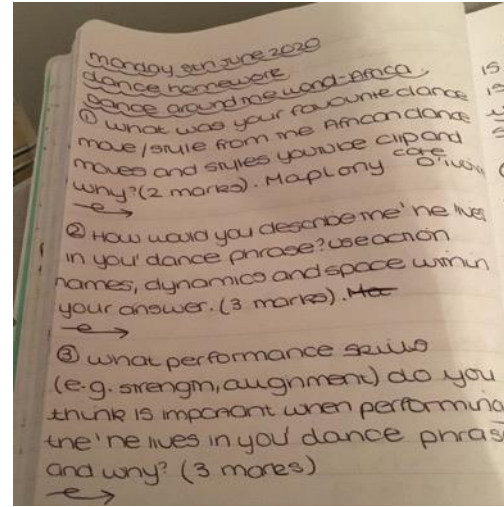 monday 8th June 2020
dance homework
Dance around the world - Africa.
① What was your favourite dance
move/style from the African dance
moves and styles youtube clip and
why? (2 marks). Maplony cote D'ivoire
② How would you describe the 'he lives
in you' dance phrase? Use action
names, dynamics and space within
your answer. (3 marks).
③ what performance skills
(e.g. strength, alignment) do you
think is important when performing
the 'he lives in you' dance phras
and why? (3 marks)
IS
IS